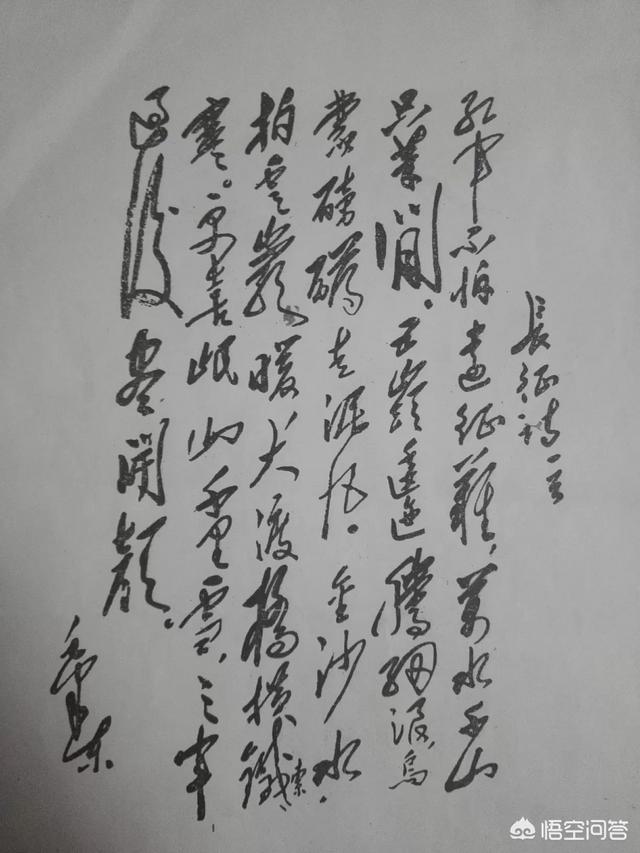 長征詩一首
紅軍不怕遠征難，萬水千山
只等閒。五嶺逶迤騰細浪，烏
蒙磅礴走泥丸。金沙水
拍雲崖暖，大渡橋橫鐵索
寒。更喜岷山千里雪，三軍
過後盡開顏。
毛澤東
悟空问答